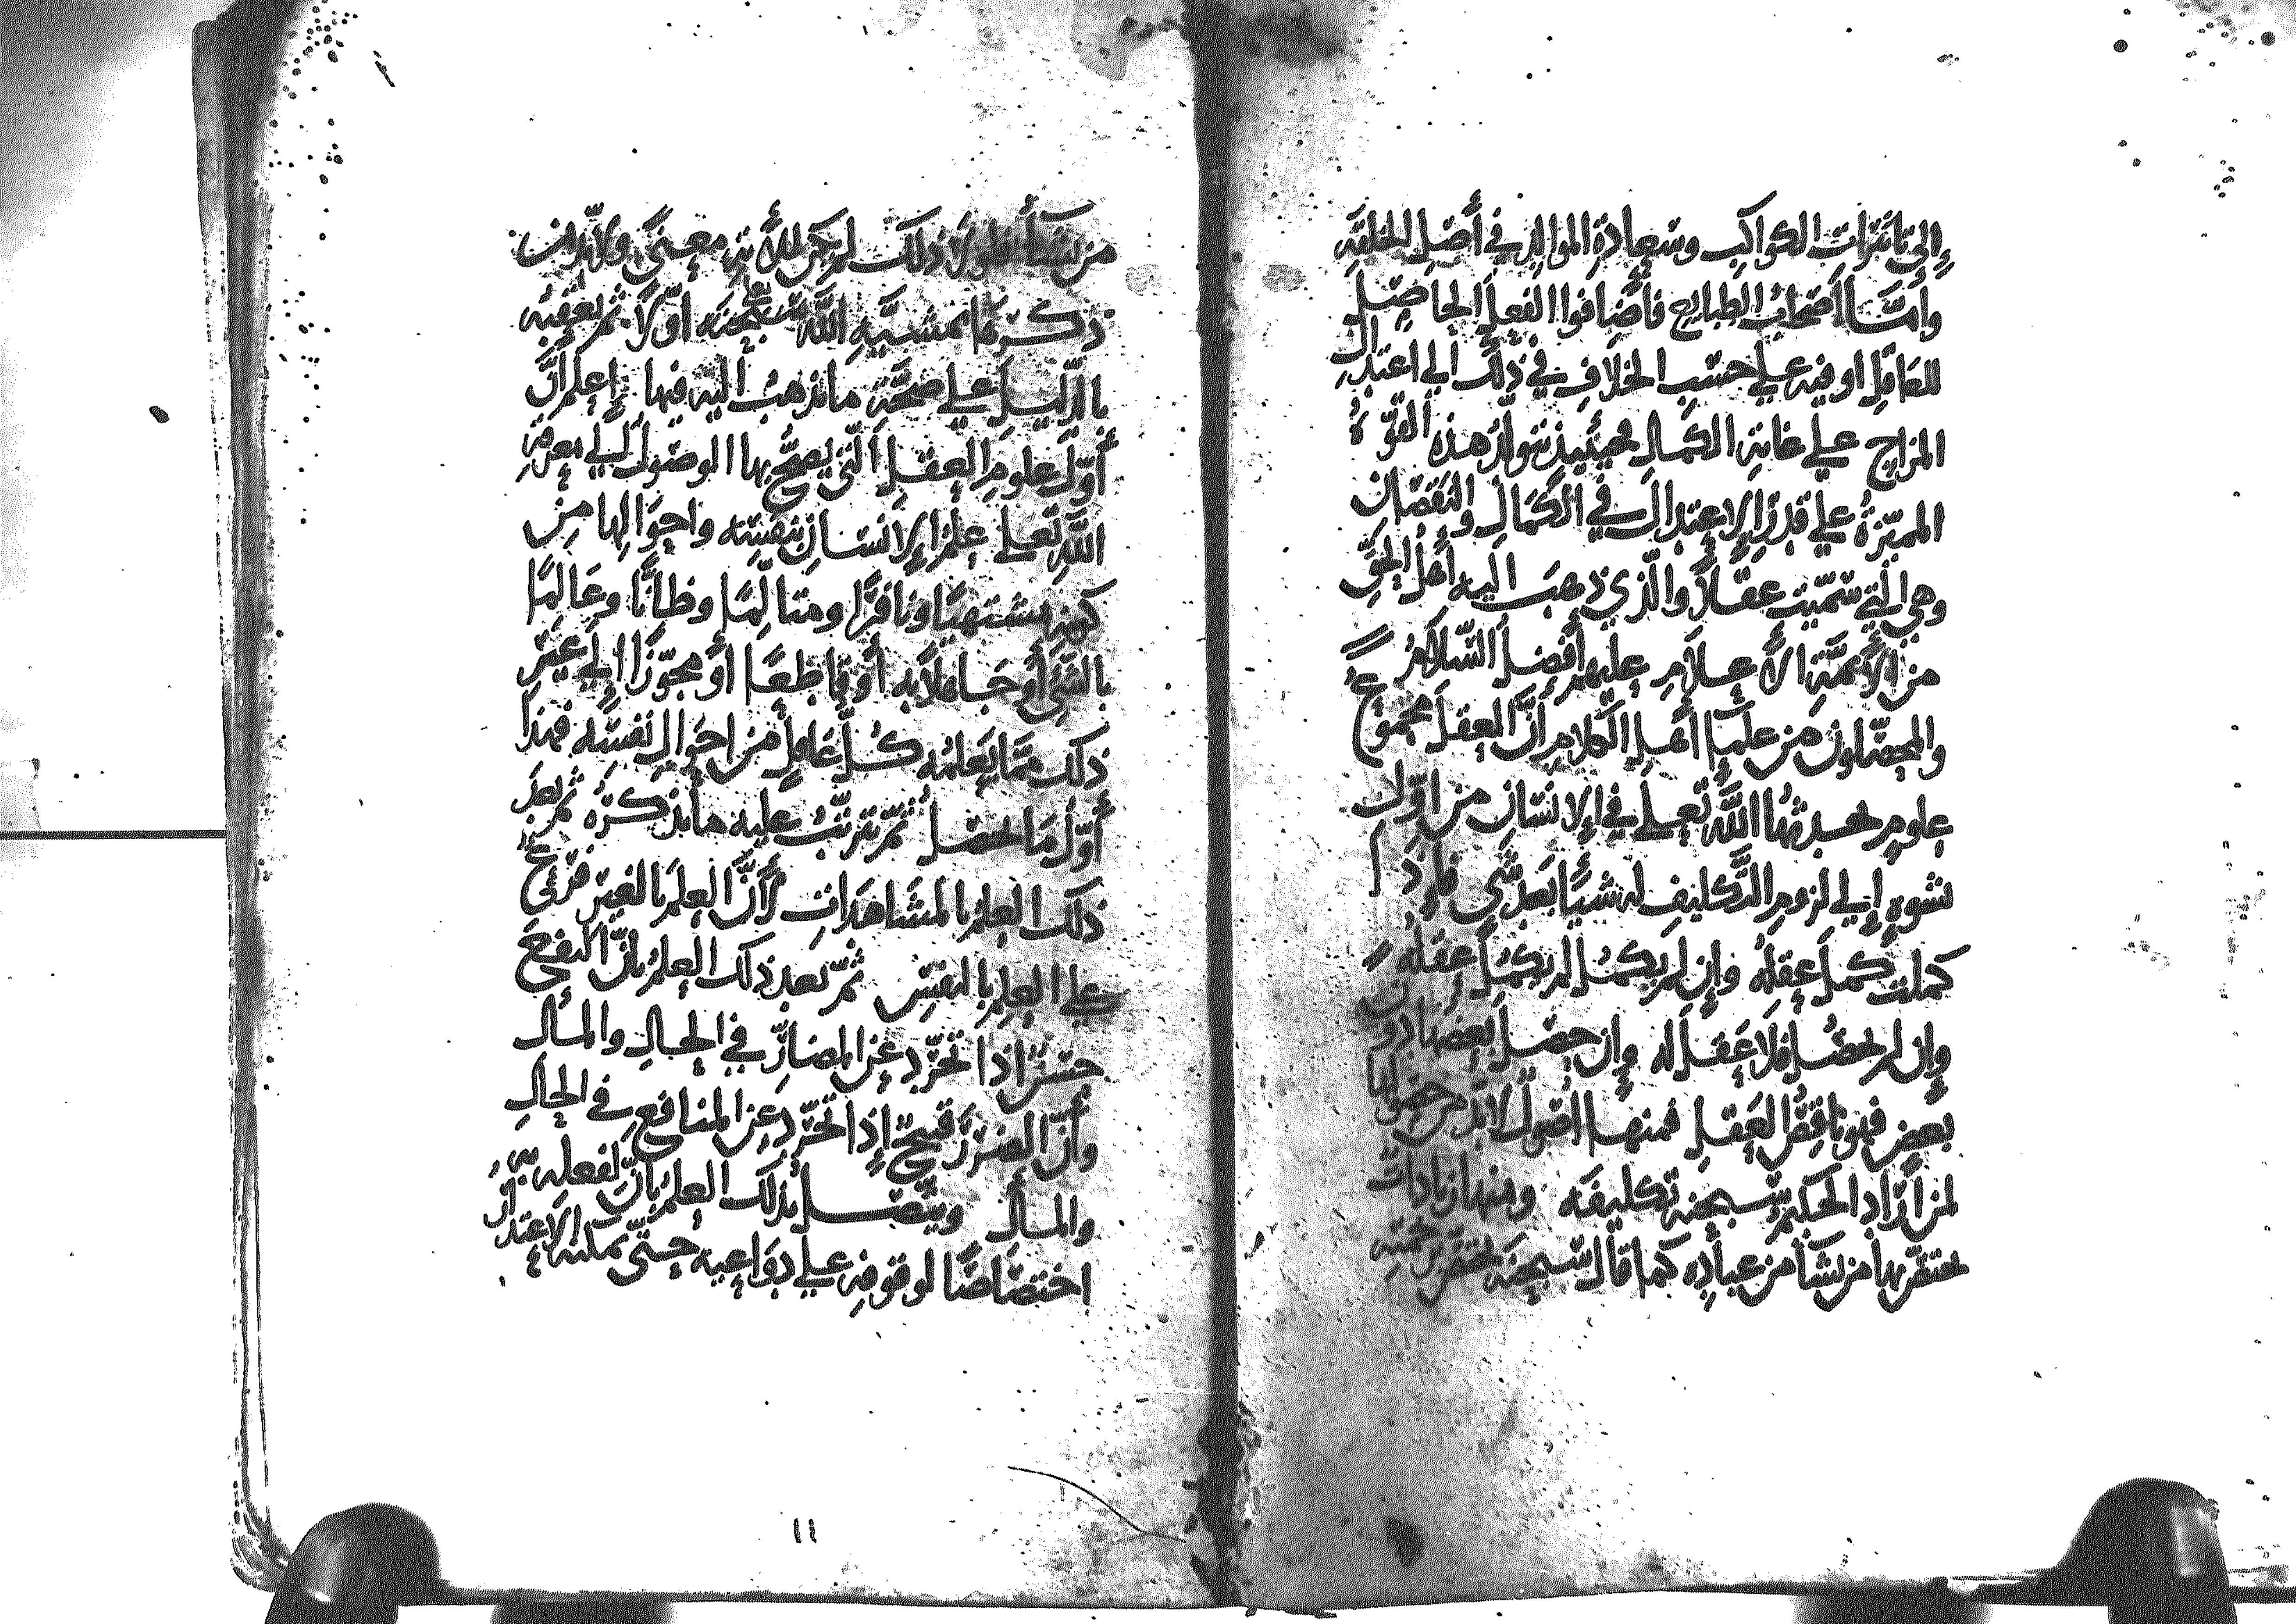 إلى تأثيرات الكواكب وسعادة الموالد في أصل الخلقة
وأمّا أصحاب الطبايع فأضافوا الفعل الحاصل
للعاقل او فيه على حسب الخلاف في ذلك الى اعتدال
المزاج على غاية الكمال فحينئيذ تتولد هذه القوّة
المميّزة على قدر الإعتدال في الكمال والنقصان
وهي الّتي سمّيت عقلاً والّذي ذهب اليه أهل الحقّ
من الأئمّة الأعلام عليهم أفضل السّلام
والمحصّلون من علمآ أهل الكلام أنّ العقل مجموع
علوم يحدثها اللّه تعلى في الإنسان من اوّل
نشوه إلى لزوم التّكليف له شيئًا بعد شي فإذا
كملت كمل عقله وإن لم يكمل لم يكمل عقله
وإن لم يحصل فلا عقل له وإن حصل بعضها دون
بعض فهو ناقص العقل فمنها اصول لا بدّ من حصولها
لمن أراد الحكيم سبحنه تكليفه ومنها زيادات
يختصّ بها من يشآ من عباده كما قال سبحنه يختصّ برحمته
من يشآ فلولا ذلك لم يكن للأية معنى ولا بدّ من
ذكرها بمشيّة اللّه سبحنه اوّلا ثم نعقبه
بالدّليل على صحّة ما نذهب اليه فيها إعلم أنّ
أوّل علوم العقل الّتي يصحّ بها الوصول إلى معرفة
اللّه تعلى علم الإنسان بنفسه واحوالها من
كونه مشتهيًا ونافرًا ومتألّمًا وظانًّا وعالمًا
بالشّيء أو جاهلاً به أو قاطعًا أو مجوّزًا إلى غير
ذلك ممّا يعلمه كلّ عاقل من احوال نفسه فهذا
أوّل ما يحصل ثمّ يترتّب عليه ما نذكره ثم بعد
ذلك العلم بالمشاهدات لأنّ العلم بالغير فرع
على العلم بالنفس ثمّ بعد ذلك العلم بأنّ النفع
حسن إذا تجرّد عن المضارّ في الحال والمأل
وأنّ الضرر قبيح إذا تجرّد عن المنافع في الحال
والمأل ويتّصل بذلك العلم بأنّ لفعله به
اختصاصًا لوقوفه على دواعيه حتّى يمكنه الاعتذار
١١